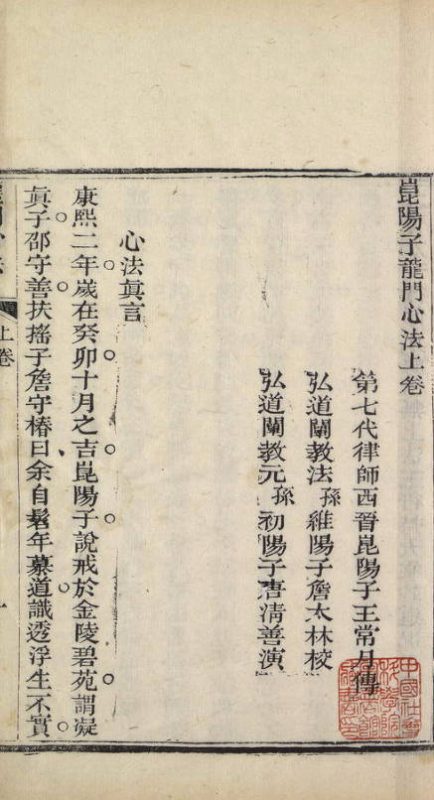 崑陽子龍門心法上卷
第七代律師西晉崑陽子王常月傳
弘道闡教法孫維陽子詹太林校
弘道闡教元孫初陽子唐清善演
心法眞言
康熙二年歲在癸卯十月之吉崑陽子說戒於金陵碧苑謂凝
眞子邵守善扶搖子詹守椿曰余自髫年慕道識透浮生不實
龍門心法
上卷
一